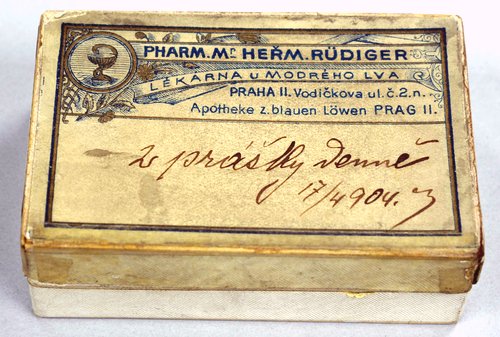 PHARM. Mr HEŘM. RÜDIGER
LÉKÁRNA U MODRÉHO LVA
PRAHA II. Vodičkova ul. č. 2.n.
Apotheke z. blauen Löwen PRAG II.
2 prášky denně
17/4 904.